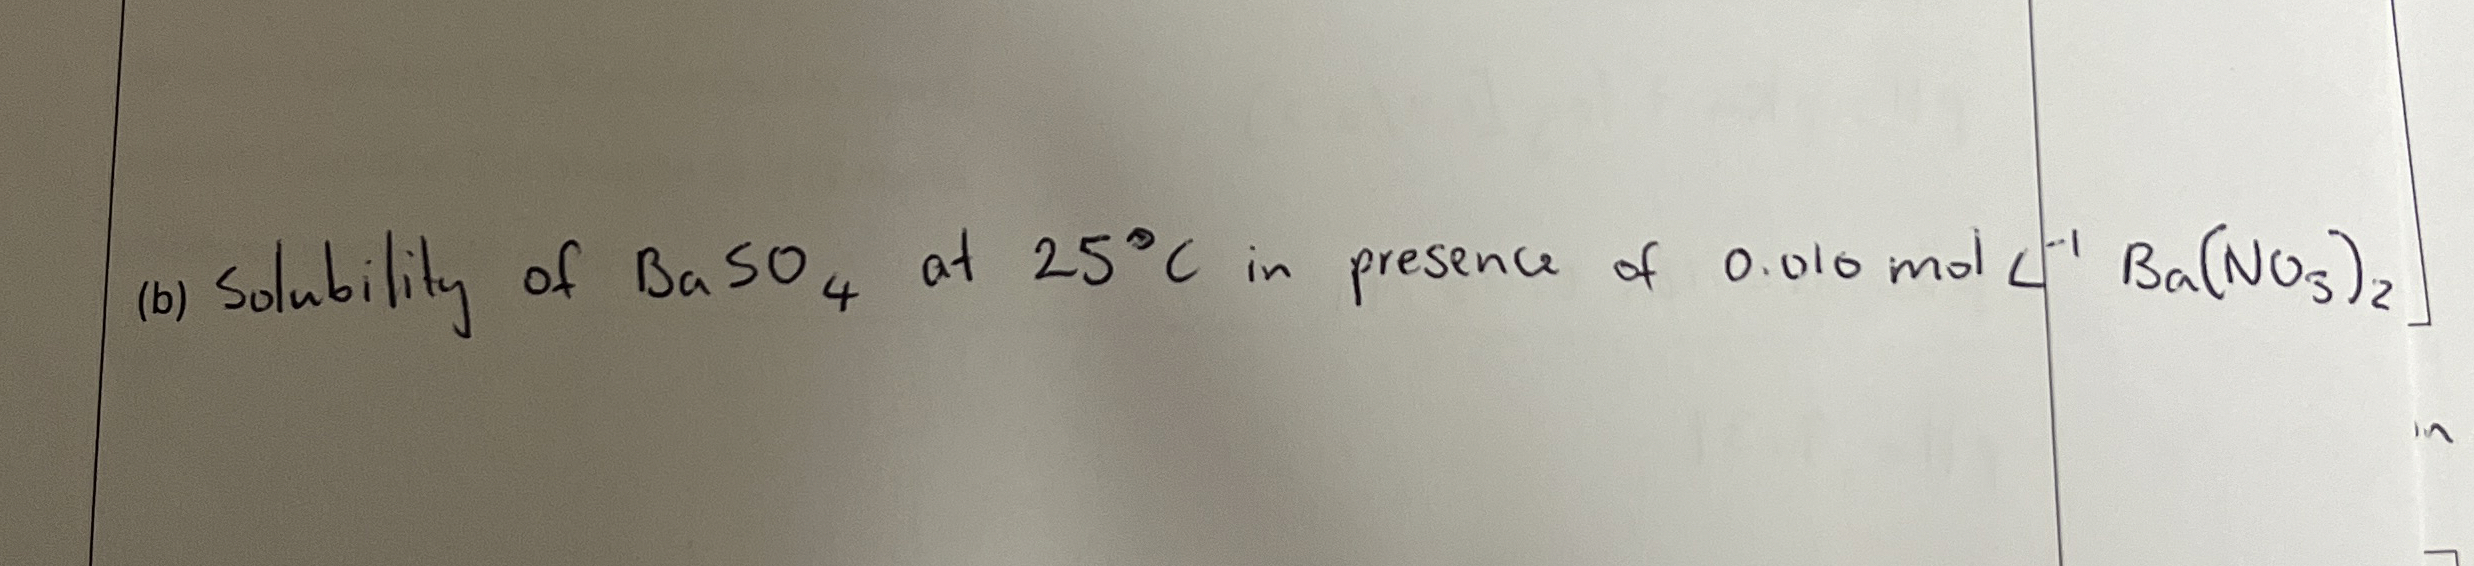 (b) Solubility of BaSO₄ at 25°C in presence of 0.010 mol L⁻¹ Ba(NO₃)₂
in